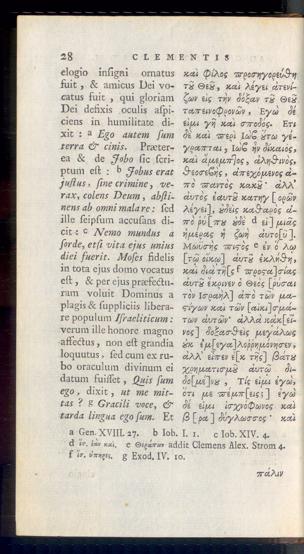 28 CLEMENTIS
elogio insigni ornatus
fuit, & amicus Dei vo-
catus fuit, qui gloriam
Dei defixis oculis aspi-
ciens in humilitate di-
xit: a Ego autem sum
terra & cinis. Præter-
ea & de Jobo sic scri-
ptum est: b Jobus erat
justus, sine crimine, ve-
rax, colens Deum, absti-
nens ab omni malare: sed
ille seipsum accusans di-
cit: c Nemo mundus a
sorde, etsi vita ejus unius
diei fuerit. Moses fidelis
in tota ejus domo vocatus
est, & per ejus præfectu-
ram voluit Dominus a
plagis & suppliciis libera-
re populum Israeliticum:
verum ille honore magno
affectus, non est grandia
loquutus, sed cum ex ru-
bo oraculum divinum ei
datum fuisset, Quis sum
ego, dixit, ut me mit-
tas? g Gracili voce, &
tarda lingua ego sum. Et
καὶ φίλος προσηγορεύθη
τῦ Θεῦ, καὶ λέγει ἀτενί-
ζων εἰς τὴν δόξαν τῦ Θεῦ
ταπεινοφρονῶν, Εγὼ δέ
εἰμι γῆ καὶ σποδός. Ετι
δὲ καὶ περὶ Ιὼβ ὕτω γέ-
γραπται, Ιὼβ ἦν δίκαιος,
καὶ ἄμεμπτος, ἀληθινὸς,
θεοσεβὴς, ἀπεχόμενος ἀ-
πὸ παντὸς κακῦ· ἀλλ'
αὐτὸς ἑαυτῦ κατηγ[ορῶν
λέγει], ὐδεὶς καθαρὸς ἀ-
πὸ ῥύ[πυ ὐδὲ d εἰ] μιᾶς
ἡμέρας ἡ ζωὴ αὐτο[υ].
Μωϋσῆς πιστὸς e ἐν ὅ λω
[τῷ οἴκῳ] αὐτῦ ἐκλήθη,
καὶ διὰ τῆ[ς προστα]σίας
αὐτῦ ἔκρινεν ὁ Θεὸς [ρῦσαι
τὸν Ισραὴλ] ἀπὸ τῶν μα-
στίγων καὶ τῶν [αἰκι]σμά-
των αὐτῶν· ἀλλὰ κἀκ[εῖ-
νος] δοξασθεὶς μεγάλως
ὐκ ἐμ[εγα]λορρημόνησεν,
ἀλλ' εἶπεν ἐ[κ τῆς] βάτυ
χρηματισμῦ αὐτῷ δι-
δο[μέ]νυ, Τίς εἰμι ἐγώ,
ὅτι με πέμπ[εις]; ἐγὼ
δέ εἰμι ἰσχνόφωνος καὶ
β[ρα]δύγλωσσος· καὶ
πάλιν
a Gen. XVIII 27. b Iob. I. 1. c Iob XIV. 4.
d ἴσ. ἐὰν καὶ. e Θεράπων addit Clemens Alex. Strom 4.
g Exod. IV. 10.